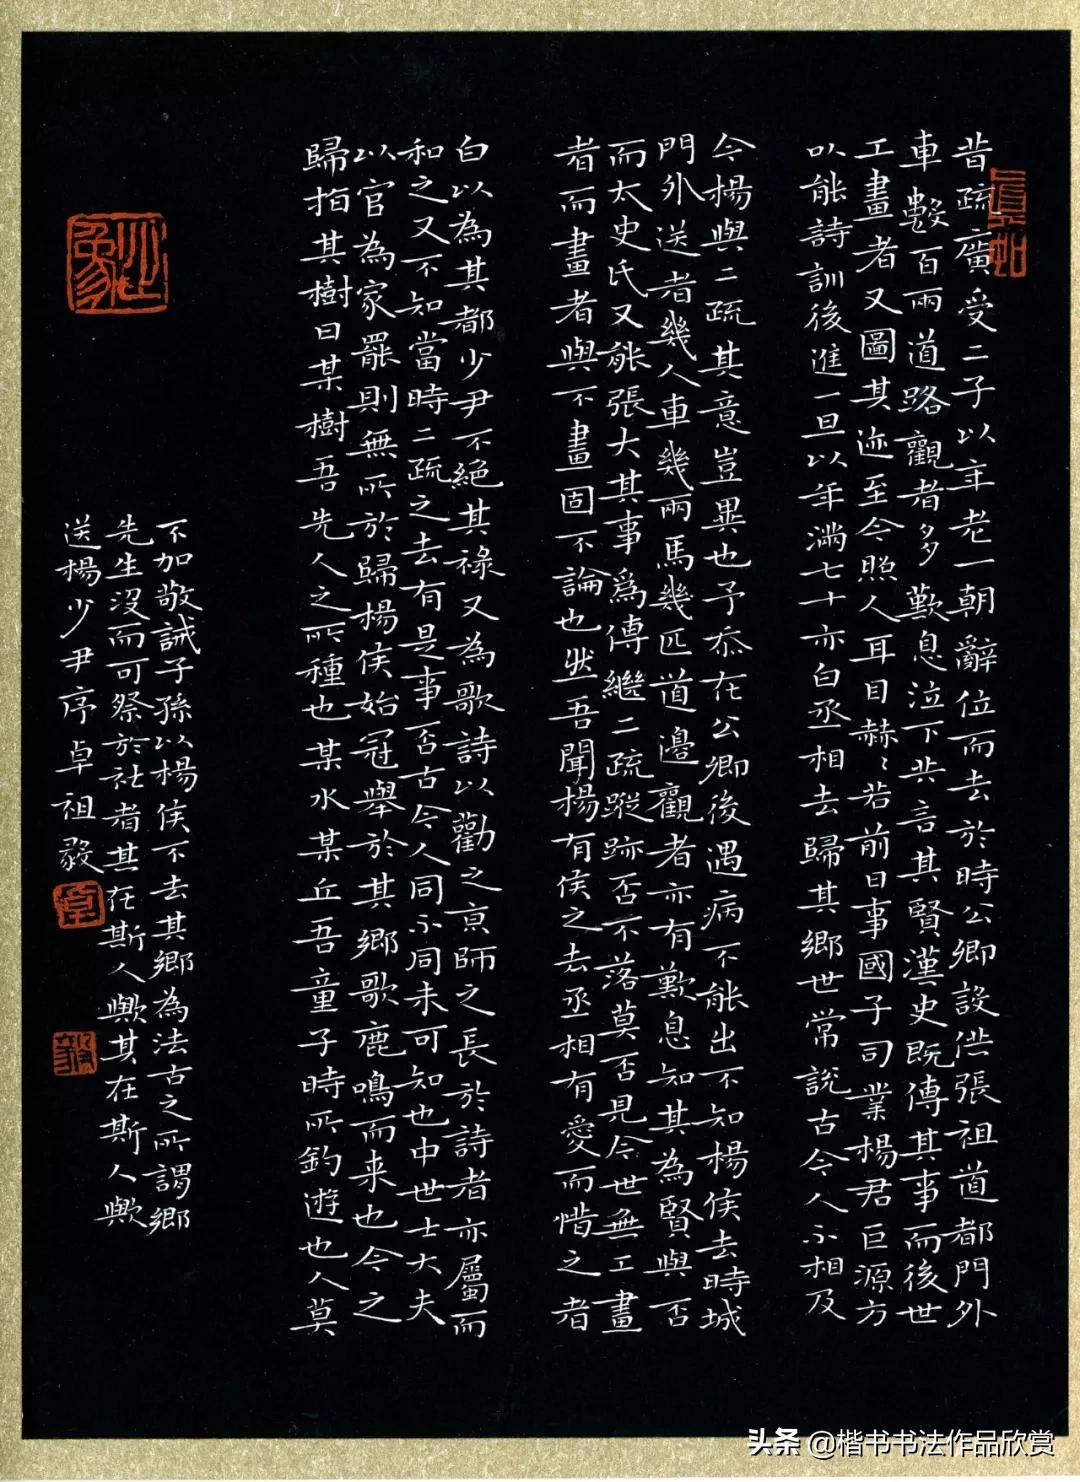 昔疏廣受二子以年老一朝辭位而去於時公卿設供張祖道都門外
車數百兩道路觀者多歎息泣下共言其賢漢史既傳其事而後世
工畫者又圖其迹至今照人耳目赫〻若前日事國子司業楊君巨源方
以能詩訓後進一旦以年滿七十亦白丞相去歸其鄉世常說古今人不相及
今楊與二疏其意豈異也予忝在公卿後遇病不能出不知楊侯去時城
門外送者幾人車幾兩馬幾匹道邊觀者亦有歎息知其為賢與否
而太史氏又能張大其事爲傳繼二疏蹤跡否不落莫否見今世無工畫
者而畫者與不畫固不論也然吾聞楊有侯之去丞相有愛而惜之者
白以為其都少尹不絕其祿又為歌詩以勸之京師之長於詩者亦屬而
和之又不知當時二疏之去有是事否古今人同不同未可知也中世士大夫
以官為家罷則無所於歸楊侯始冠舉於其鄉歌鹿鳴而来也今之
歸指其樹曰某樹吾先人之所種也某水某丘吾童子時所釣遊也人莫
不加敬誡子孫以楊侯不去其鄉為法古之所謂鄉
先生沒而可祭於社者其在斯人歟其在斯人歟
送楊少尹序卓祖毅
卓
毅
头条 @楷书书法作品欣赏